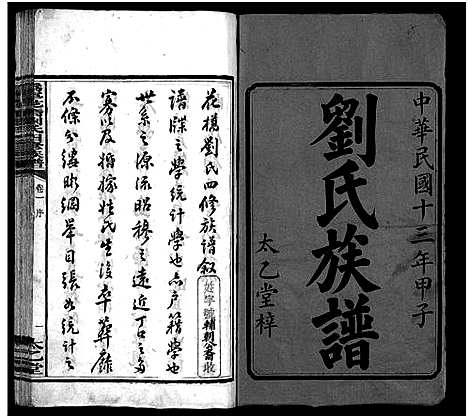 中華民國十三年甲子
劉氏族譜
太乙堂梓
花橋劉氏四修族譜叙
譜牒之學統計學也亦戶籍學也
世系之源流昭穆之遠近丁口之多
寡以及婚嫁姓氏生沒卒葬靡
不條分縷晰綱舉目張如統計之
輔朝公裔收
卷一序
太乙堂